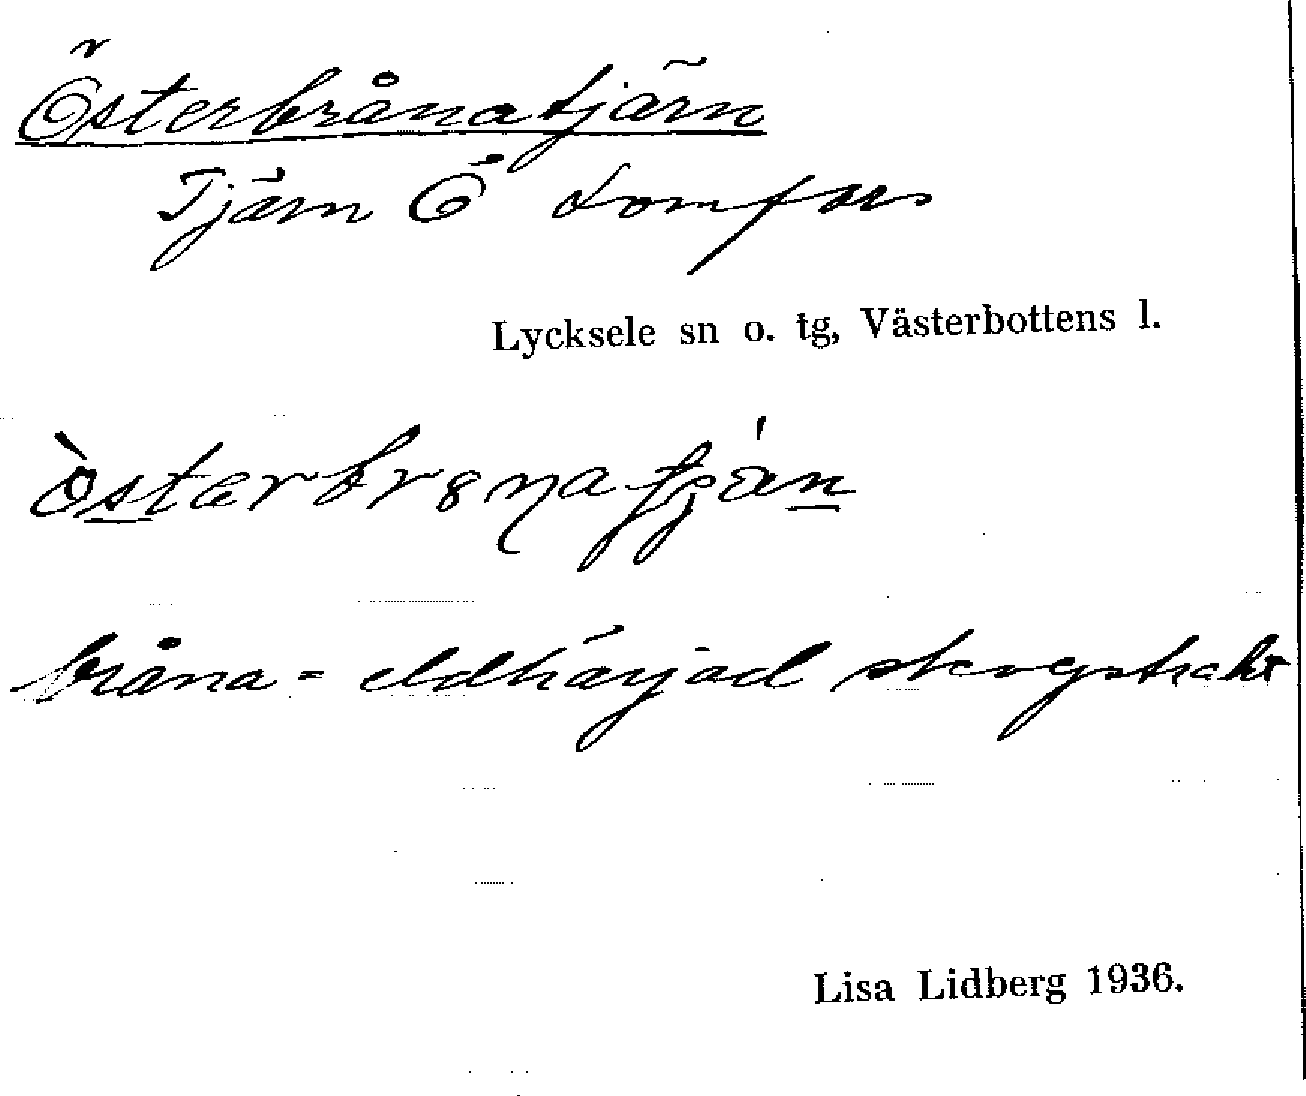 Österbrånatjärn
Tjärn Ö Lomfors
Lycksele sn o. tg, Västerbottens l.
bråna = eldhärjad skogstrakt
Lisa Lidberg 1936.